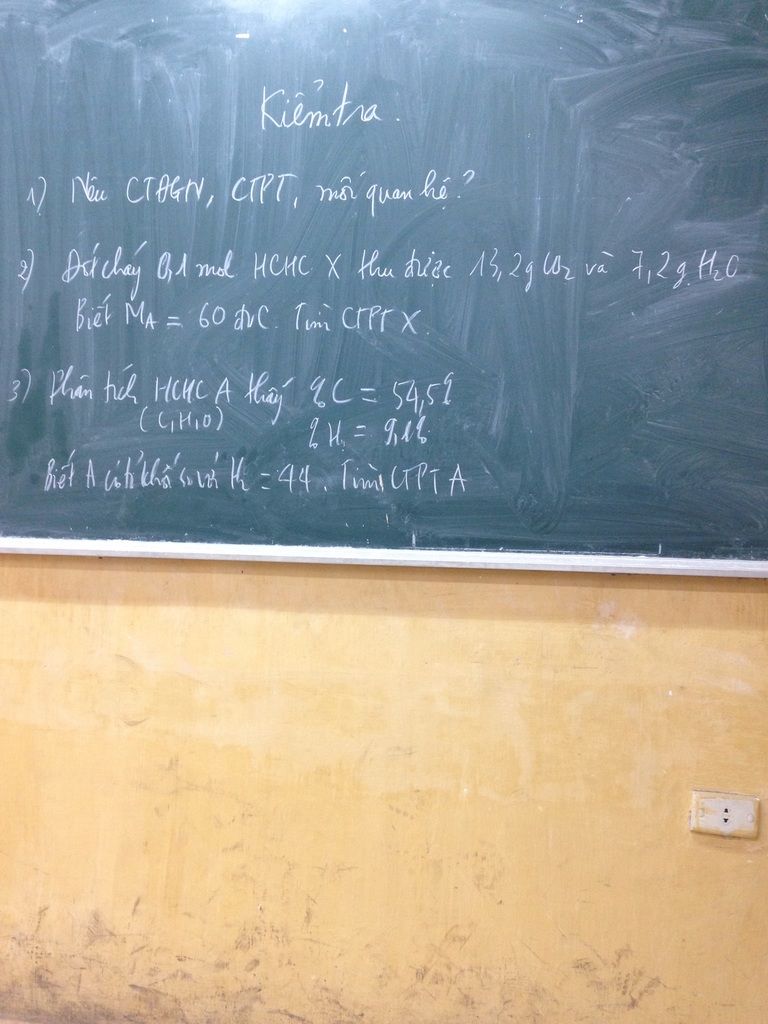 Kiểm tra.
1) Nêu CTĐGN, CTPT, mối quan hệ?
2) Đốt cháy 0,1 mol HCHC X thu được 13,2g CO2 và 7,2g H2O
Biết MA = 60 đvC. Tìm CTPT X
3) Phân tích HCHC A thấy %C = 54,5%
(C,H,O) %H = 9,1%
Biết A có tỉ khối so với H2 = 44. Tìm CTPT A